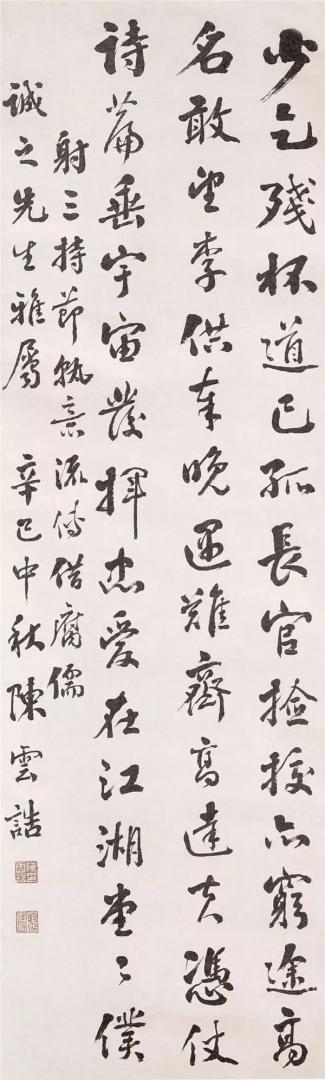 少乞殘杯道已孤長官撿挍亦窮途高
名敢望李供奉晚遇難齊高達夫憑仗
詩篇垂宇宙發揮忠愛在江湖堂〻僕
射三持節孰意流傳借腐儒
誠之先生雅屬 辛巳中秋陳雲誥